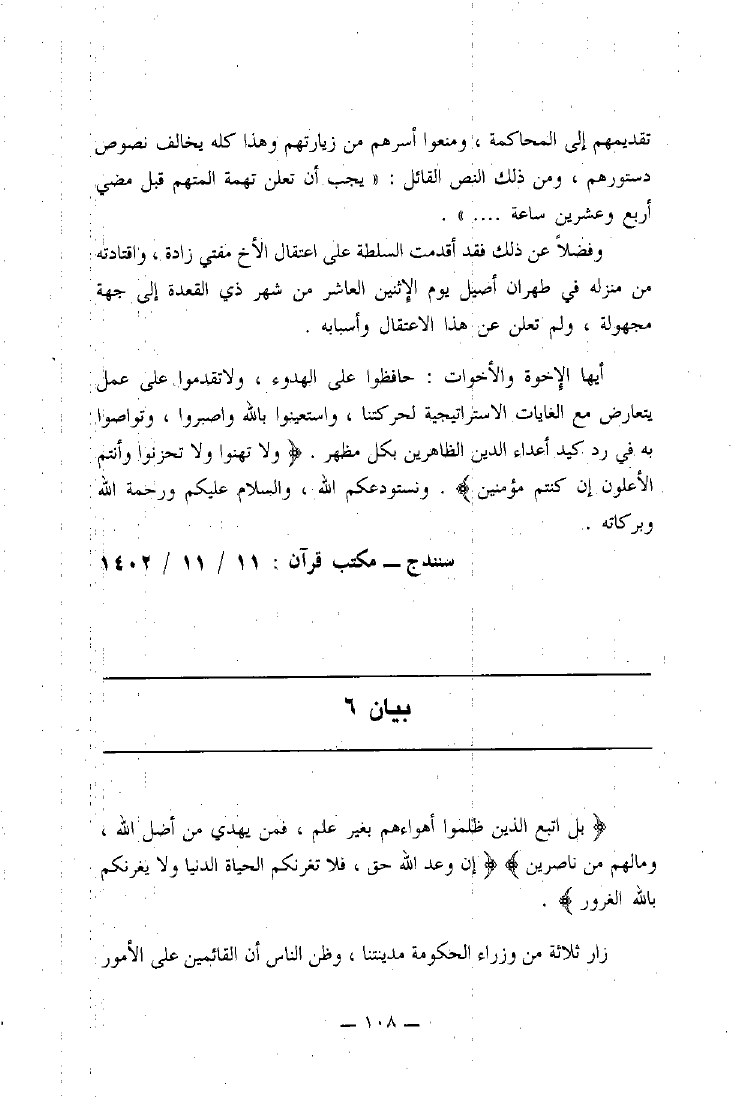 تقديمهم إلى المحاكمة ، ومنعوا أسرهم من زيارتهم وهذا كله يخالف نصوص
دستورهم ، ومن ذلك النص القائل : « يجب أن تعلن تهمة المتهم قبل مضي
أربع وعشرين ساعة .... » .
وفضلاً عن ذلك فقد أقدمت السلطة على اعتقال الأخ مفتي زادة ، واقتادته
من منزله في طهران أصيل يوم الإثنين العاشر من شهر ذي القعدة إلى جهة
مجهولة ، ولم تعلن عن هذا الاعتقال وأسبابه .
أيها الإخوة والأخوات : حافظوا على الهدوء ، ولاتقدموا على عمل
يتعارض مع الغايات الاستراتيجية لحركتنا ، واستعينوا بالله واصبروا ، وتواصوا
به في رد كيد أعداء الدين الظاهرين بكل مظهر . ﴿ ولا تهنوا ولا تحزنوا وأنتم
الأعلون إن كنتم مؤمنين ﴾ . ونستودعكم الله ، والسلام عليكم ورحمة الله
وبركاته .
سنندج ــ مكتب قرآن : ١١ / ١١ / ١٤٠٢
بيان ٦
﴿ بل اتبع الذين ظلموا أهواءهم بغير علم ، فمن يهدي من أضل الله ،
ومالهم من ناصرين ﴾ ﴿ إن وعد الله حق ، فلا تغرنكم الحياة الدنيا ولا يغرنكم
بالله الغرور ﴾ .
زار ثلاثة من وزراء الحكومة مدينتنا ، وظن الناس أن القائمين على الأمور
ــ ١٠٨ ــ